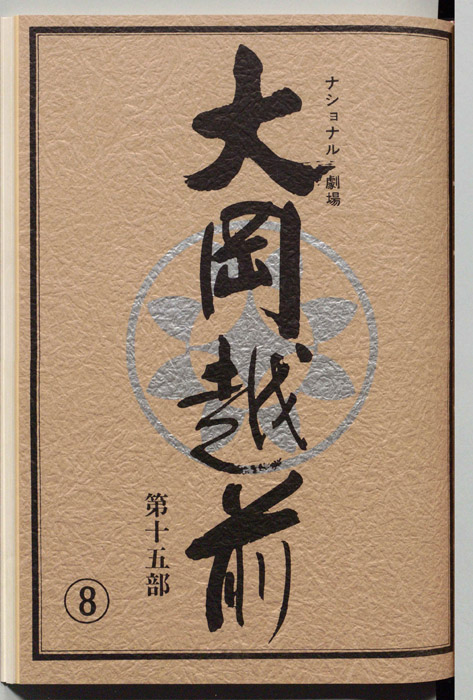 ナショナル劇場
大岡越前
第十五部
8